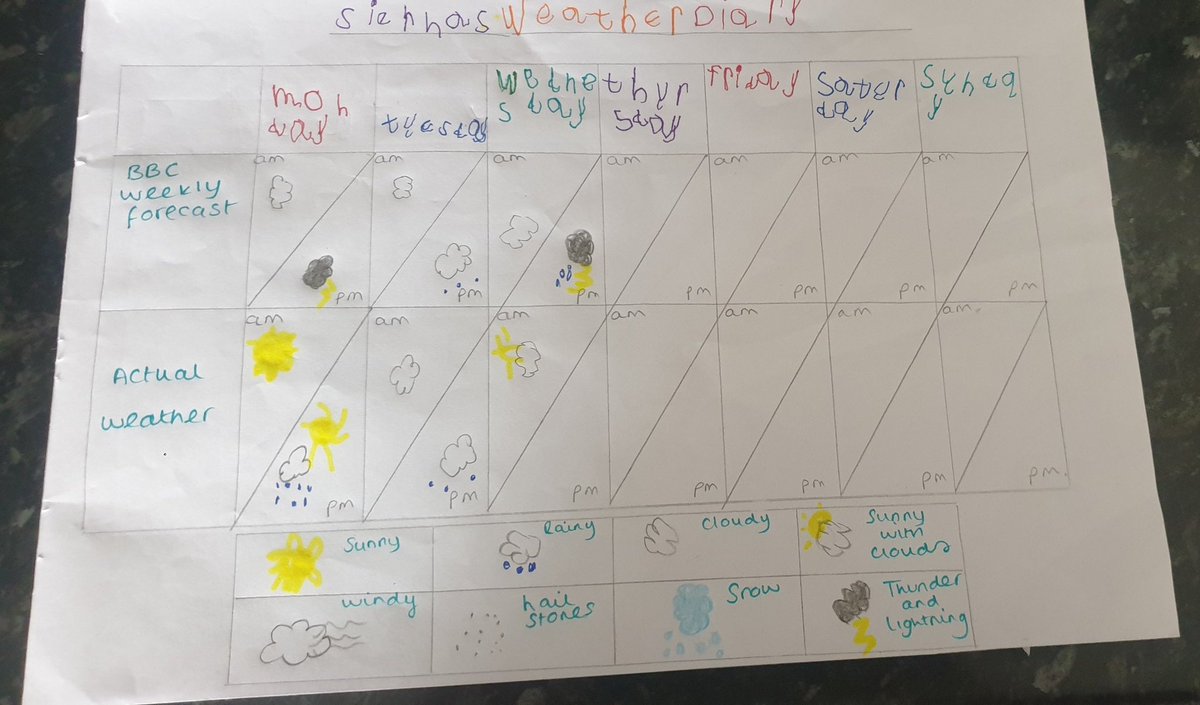 siennas Weather Diary
mon
day
tuesday
Wedne
sday
thur
sday
friday
Satur
day
Sunda
y
BBC
weekly
forecast
am
am
am
am
am
am
am
pm
pm
pm
pm
pm
pm
pm
Actual
weather
am
am
am
am
am
am
am
pm
pm
pm
pm
pm
pm
pm
Sunny
Rainy
Cloudy
Sunny
with
clouds
windy
hail
stones
Snow
Thunder
and
lightning